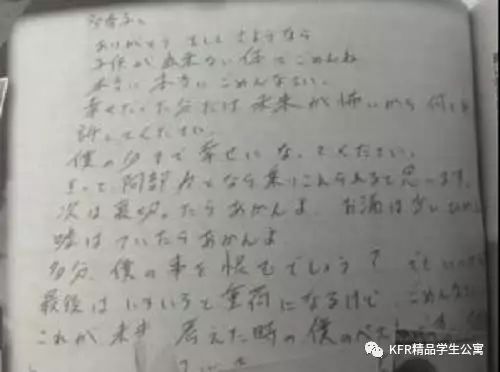 多香子へ
ありがとう そして さようなら
子供が出来ない体でごめんね
本当に本当にごめんなさい。
幸せだった分だけ未来が怖いから 何も
許してください。
僕の分まで幸せになってください。
きっと 阿部力となら乗りこえられると思います
次は裏切ったらあかんよ お酒は少しひかえ
嘘はついたらあかんよ
多分、僕の事を恨むでしょう?
最後は いろいろと重荷になるけど ごめんなさい
これが未来 考えた時の僕のベスト
KFR精品学生公寓